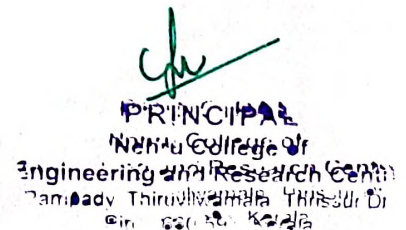 PRINCIPAL
Nehru College of
Engineering and Research Centr
Pampady Thiruvilwamala Thrissur Di
Pin Kerala